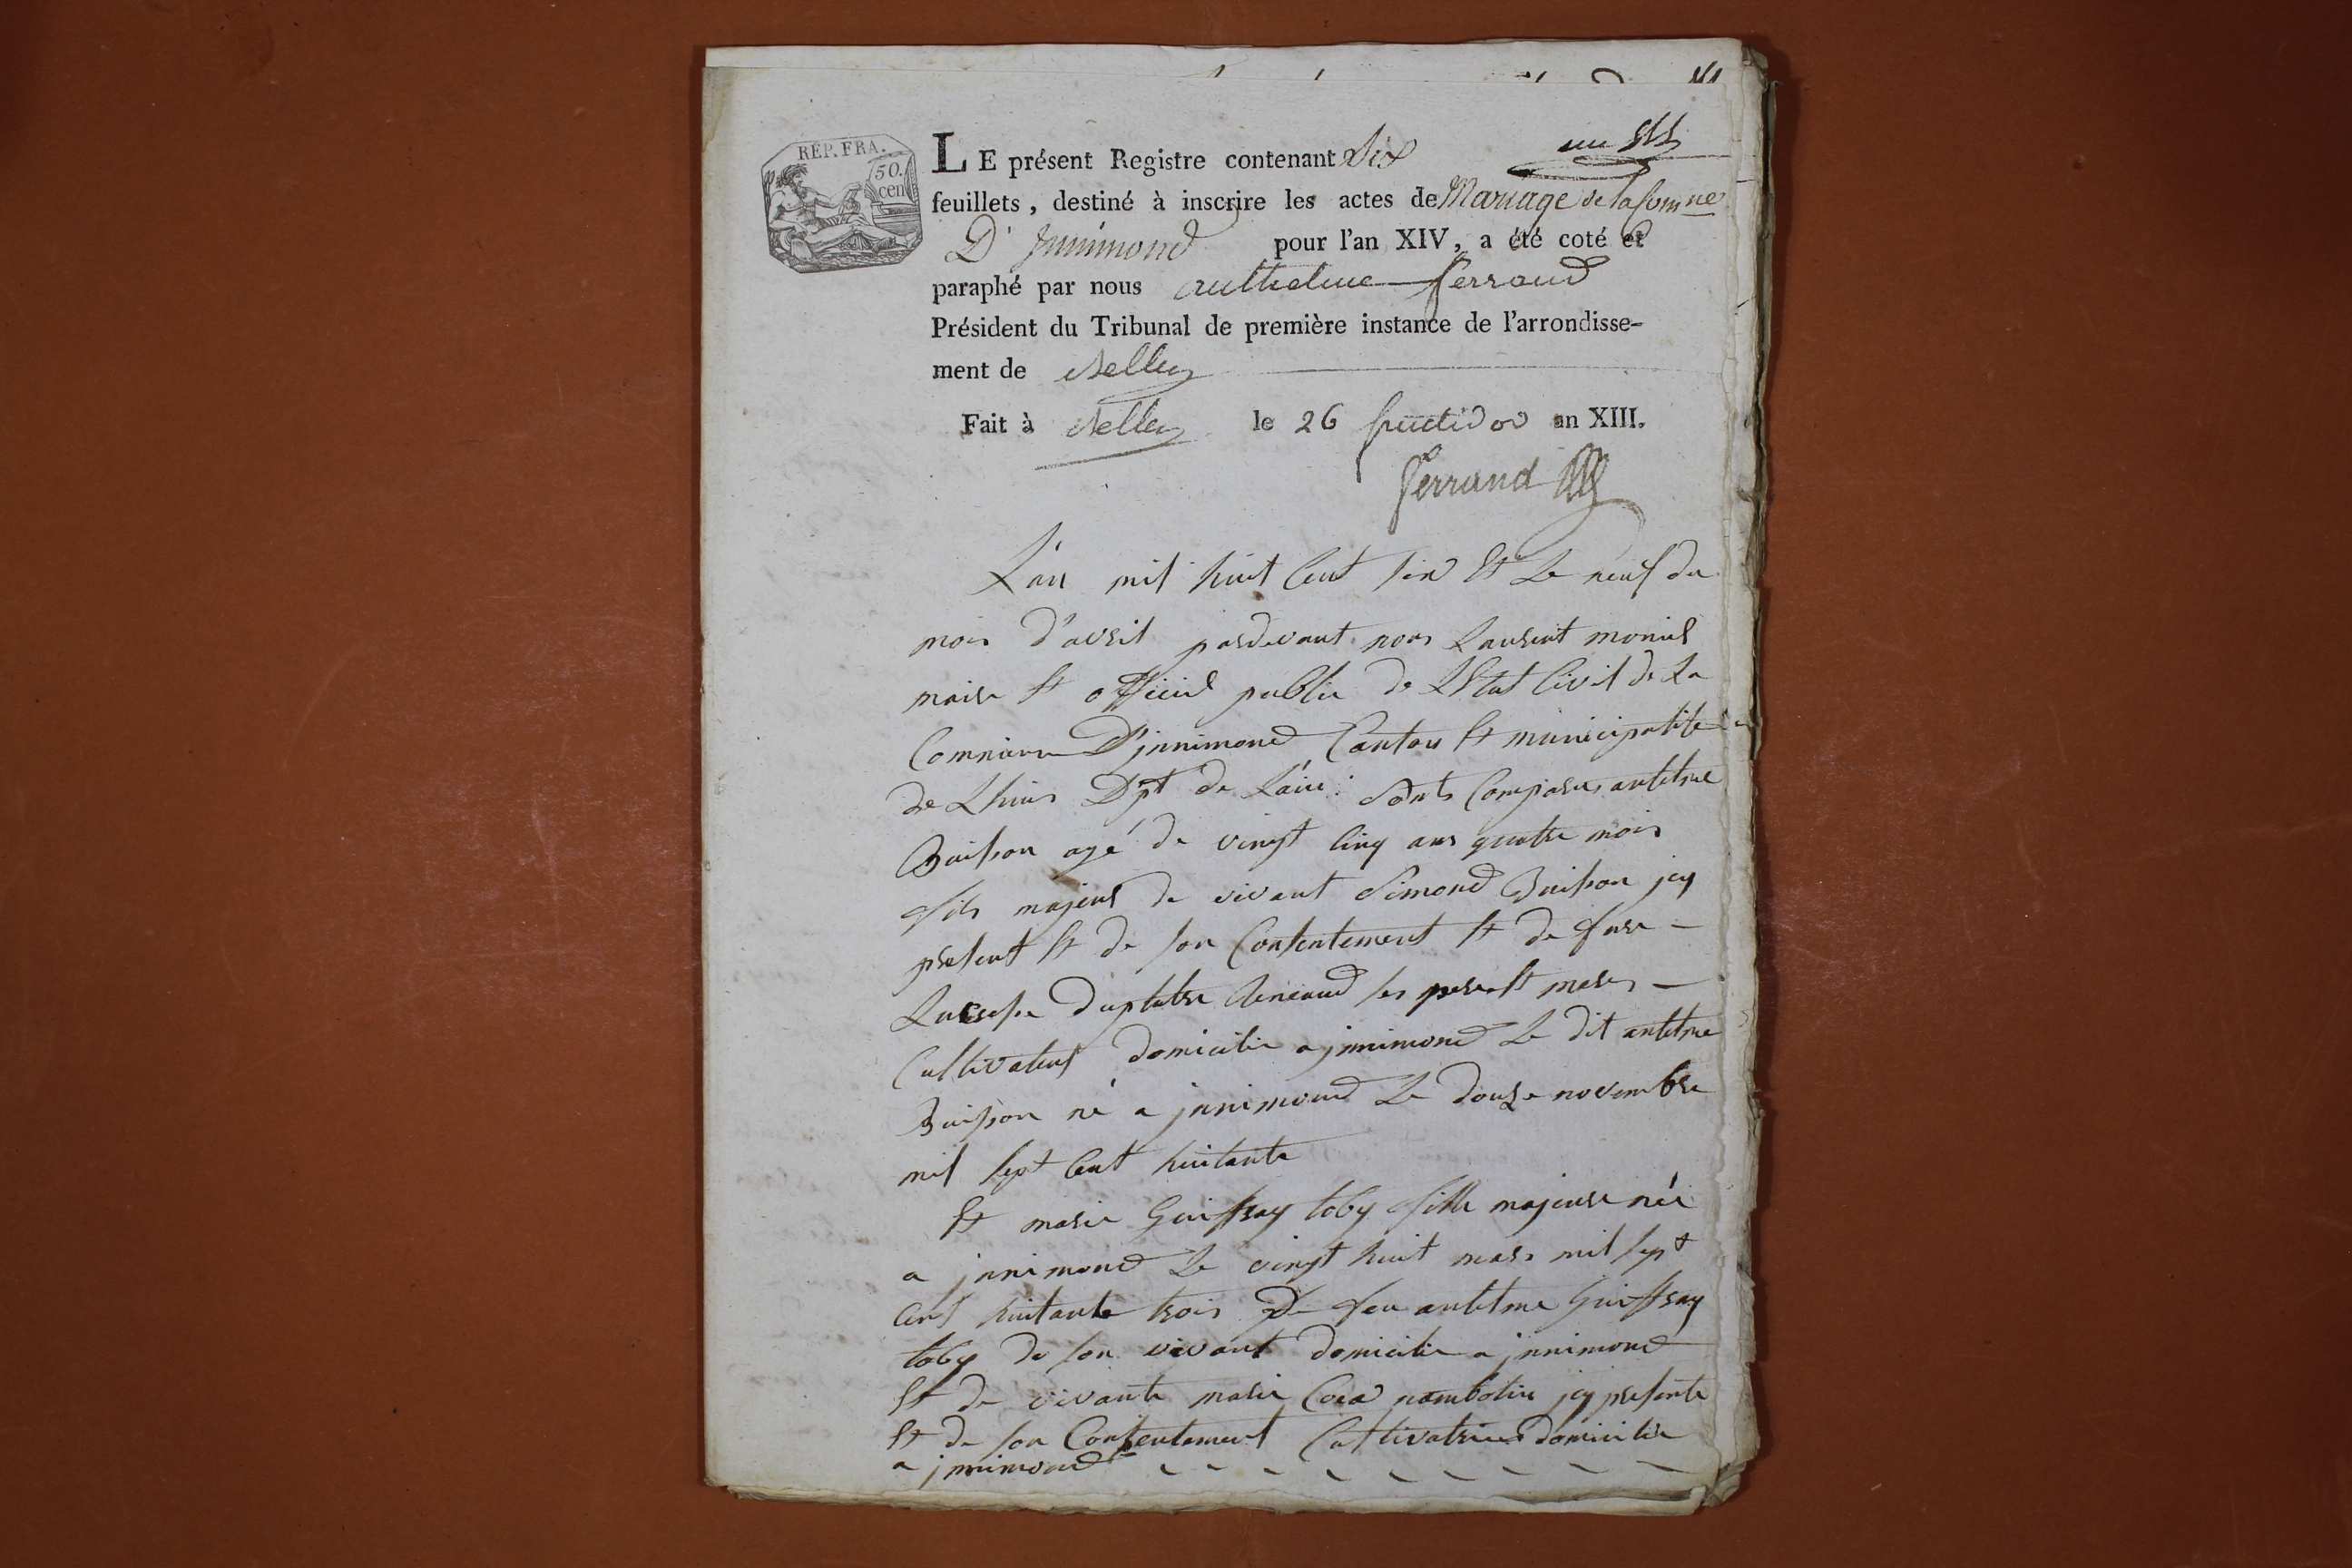 RÉP. FRA.
50.
cen
LE présent Registre contenant Six
un
feuillets, destiné à inscrire les actes de Mariage de la Comne
D'Innimond pour l'an XIV, a été coté et
paraphé par nous anthelme ferrand
Président du Tribunal de première instance de l'arrondisse-
ment de Belley
Fait à Belley le 26 fructidor an XIII.
ferrand
L'an mil huit Cent six Et Le neuf du
mois d'avril pardevant nous Laurent monier
maire Et officier public de L'Etat Civil de La
Commune D'jnnimond Canton Et municipalité
de Lhuis Dpt de L'ain : Sont Comparus antelme
Buisson agé de vingt Cinq ans quatre mois
fils majeur de vivant Simond Buisson jcy
present Et de son Consentement Et de fure
Reneaud ses pere Et mere
Cultivateur domicilie a jnnimond Le dit antelme
Buisson né a jnnimond Le douze novembre
mil sept Cent huitante
Et marie Guiffray toby fille majeure née
a jnnimond Le vingt huit mars mil sept
Cent huitante trois De feu antelme Guiffray
toby de son vivant domicilie a jnnimond
Et de vivante marie jcy presente
Et de son Consentement Cultivatrice domicilie
a jnnimond